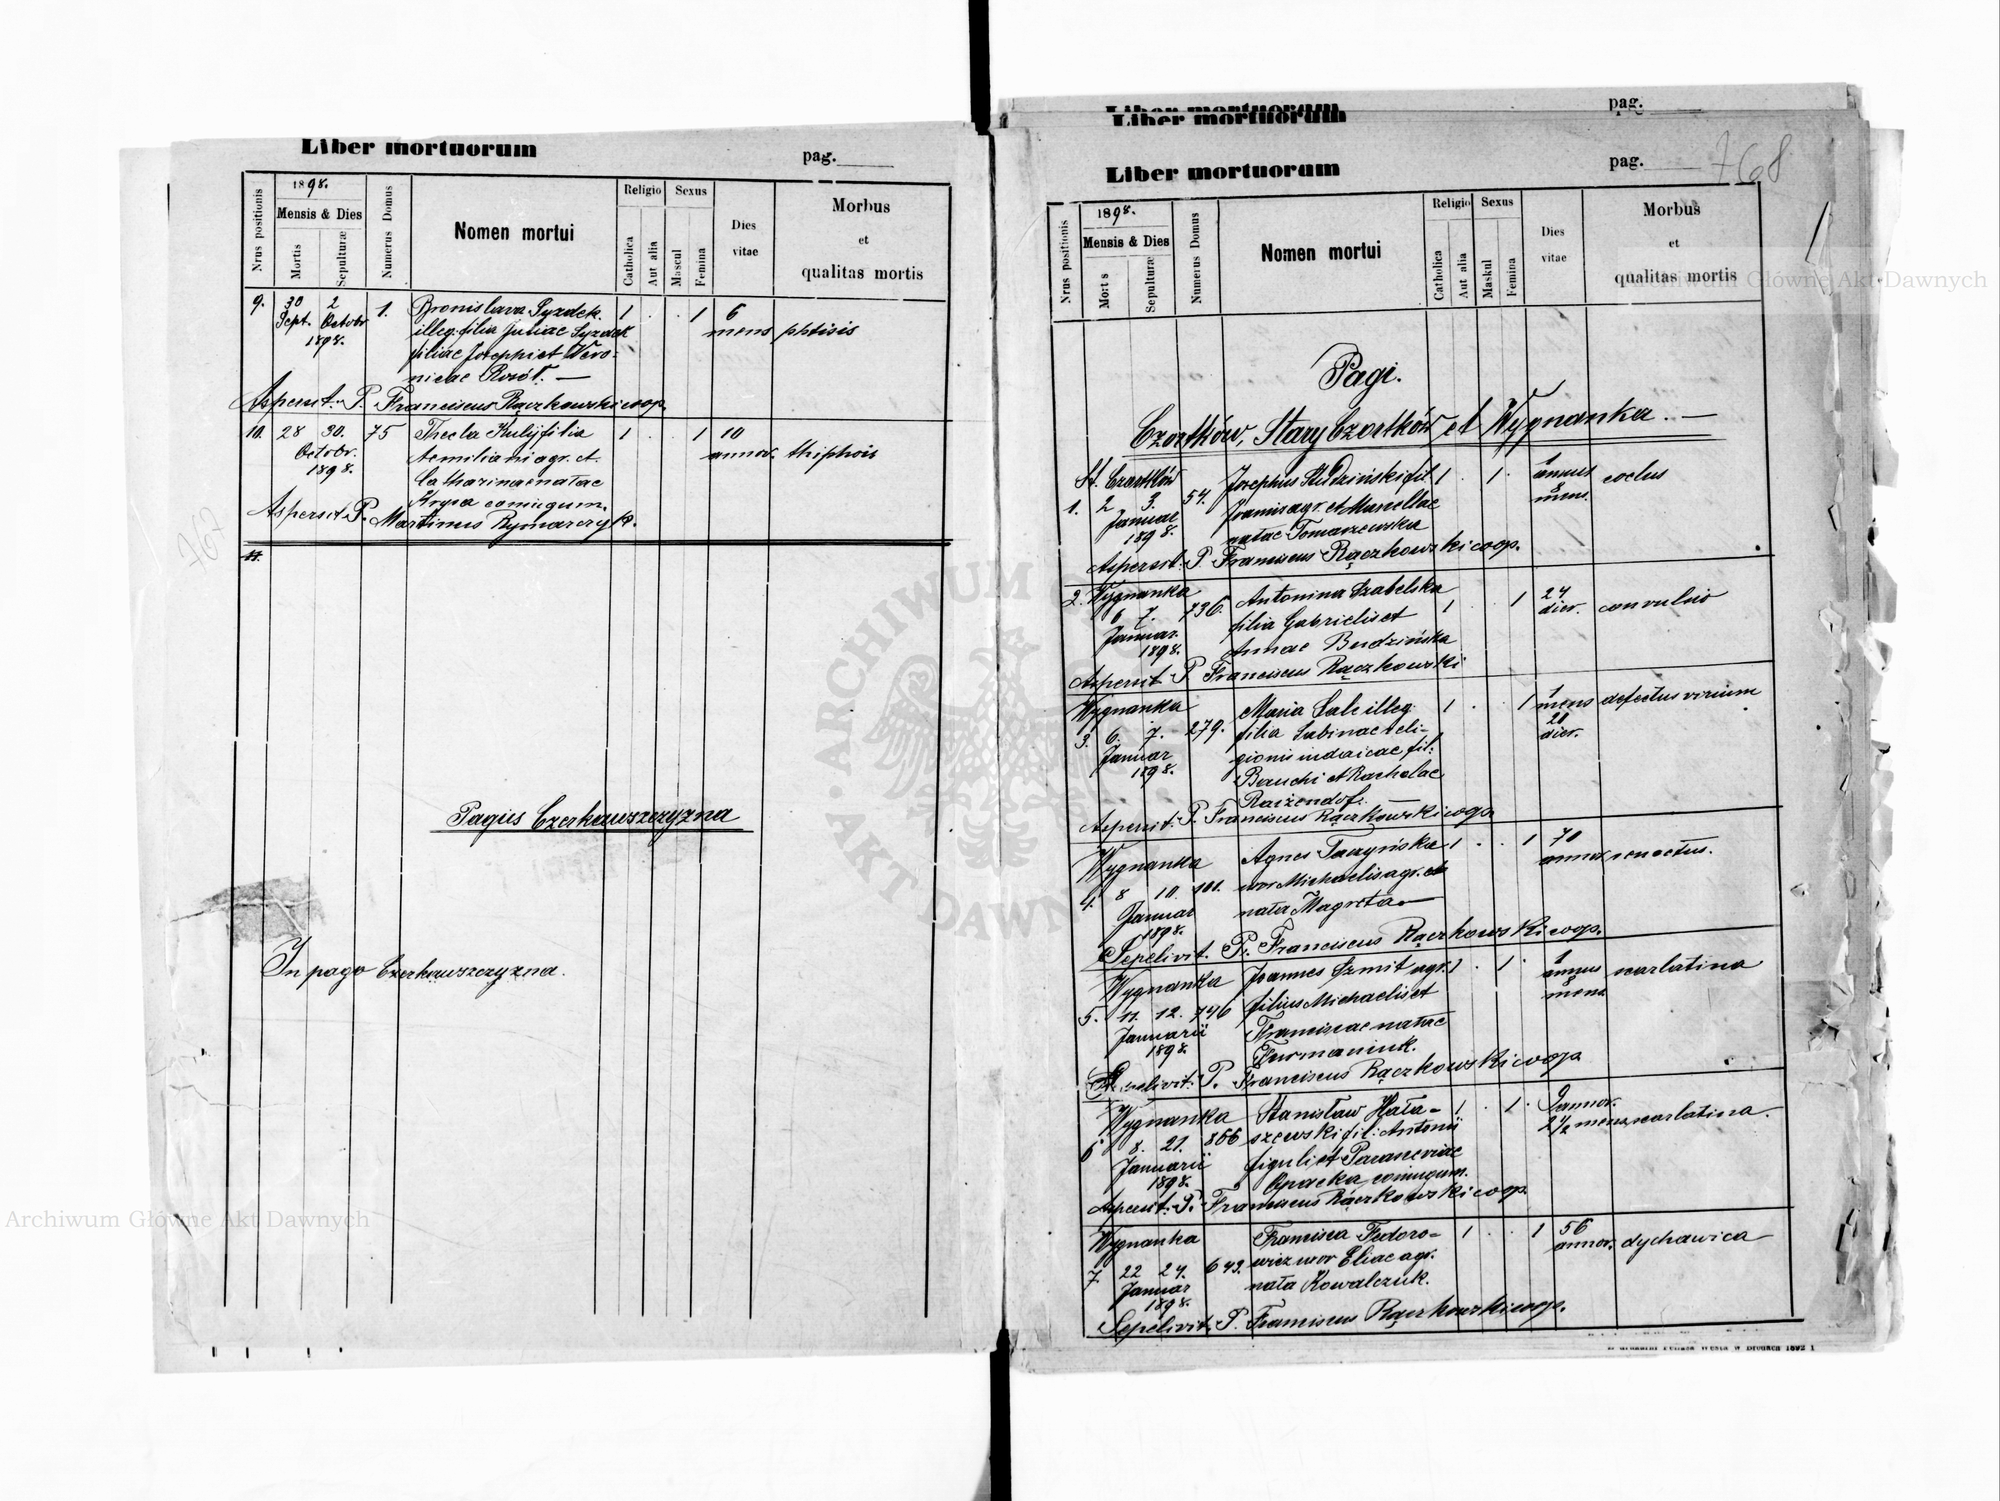 Liber mortuorum
pag.
Nrus positionis
1898.
Mensis & Dies
Mortis
Sepulturæ
Numerus Domus
Nomen mortui
Religio
Catholica
Aut alia
Sexus
Mascul
Femina
Dies
vitae
Morbus
et
qualitas mortis
9. 30 2 1. Bronislava Syzdek. 1 . . 1 6
Sept. Octobr illeg. filia Juliae Syzdek mens phtisis
1898. filiae Josephi et Vero-
nicae
Aspersit. P. Franciscus Rączkowski coop.
10. 28 30. 75 Thecla Kulij filia 1 . . 1 10
Octobr. Aemiliani agr. et annor. thiphois
1898. Catharinae natae
coniugum.
Aspersit P. Martinus Rymarczyk.
11.
767
Pagus Czerkawszczyzna
In pago Czerkawszczyzna.
Liber mortuorum
pag.
Liber mortuorum
Liber mortuorum
pag.
768
Nrus positionis
1898.
Mensis & Dies
Mortis
Sepulturæ
Numerus Domus
Nomen mortui
Religio
Catholica
Aut alia
Sexus
Maskul
Femina
Dies
vitae
Morbus
et
qualitas mortis
Pagi.
Czortków, Stary Czortków et Wygnanka. —
St. Czortków Josephus Studziński fil. 1 . 1 . 1 annus
1. 2 3. 54. Joannis agr. et Marcellae 8 mens.
Januar natae Tomaszewska
1898.
Aspersit. P. Franciscus Rączkowski coop.
2. Wygnanka Antonina Szabelska 24
6 7. 736. filia Gabrielis et 1 . . 1 dier. convulsio
Januar. Annae Budzińska
1898.
Aspersit P. Franciscus Rączkowski
Wygnanka Maria illeg. 1 . . 1 1 mens defectus virium
3. 6. 7. 279. filia Sabinae reli- 28
Januar gionis iudaicae fil: dier.
1898. et Rachelae
Aspersit. P. Franciscus Rączkowski coop.
Wygnanka Agnes Taczyńska 1 . . 1 70
4. 8 10. 101. uxor Michaelis agr. annor. senectus.
Januar nata Magreta —
1898.
Sepelivit. P. Franciscus Rączkowski coop.
Wygnanka Joannes Szmit agr. 1 . 1 . 1 annus scarlatina
5. 11. 12. 746 filius Michaelis et 8 mens
Januarii Franciscae natae
1898. Furmaniuk.
Sepelivit. P. Franciscus Rączkowski coop
Wygnanka Stanisław Hała- 1 . 1 . annor.
6 8. 21. 866 szewski fil: Antonii 2½ mens scarlatina.
Januarii figuli et Parasceviae
1898. Opacka coniugum.
Aspersit. P. Franciscus Rączkowski coop.
Wygnanka Francisca Fedoro- 1 . . 1 56
7. 22 24. 643. wicz uxor Eliae agr. annor. dychawica
Januar nata Kowalczuk.
1898.
Sepelivit. P. Franciscus Rączkowski coop.
ARCHIWUM GŁÓWNE AKT DAWNYCH
Archiwum Główne Akt Dawnych
Archiwum Główne Akt Dawnych